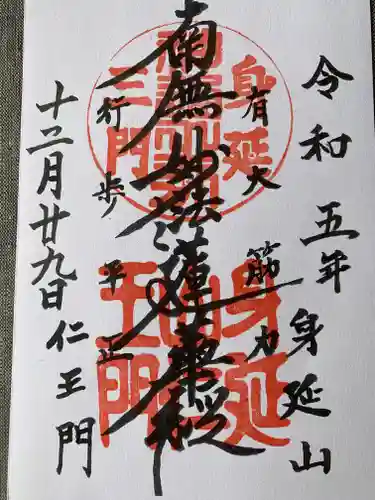 令和五年
身延山
有大筋力
南無妙法蓮華経
行歩平正
十二月廿九日
仁王門
身延
三門
身延山
仁王門